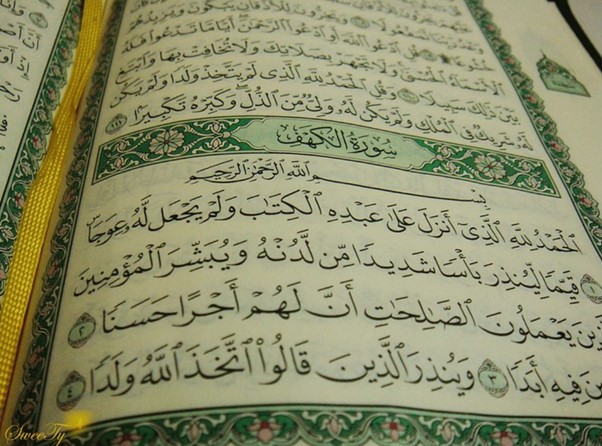 وَعْدُ رَبِّنَا لَمَفْعُولًا ۝ وَيَخِرُّونَ لِلْأَذْقَانِ يَبْكُونَ وَيَزِيدُهُمْ
خُشُوعًا ۝ قُلِ ٱدْعُوا۟ ٱللَّهَ أَوِ ٱدْعُوا۟ ٱلرَّحْمَٰنَ أَيًّا مَّا تَدْعُوا۟ فَلَهُ
ٱلْأَسْمَآءُ ٱلْحُسْنَىٰ وَلَا تَجْهَرْ بِصَلَاتِكَ وَلَا تُخَافِتْ بِهَا وَٱبْتَغِ
بَيْنَ ذَٰلِكَ سَبِيلًا ۝ وَقُلِ ٱلْحَمْدُ لِلَّهِ ٱلَّذِى لَمْ يَتَّخِذْ وَلَدًا وَلَمْ يَكُن
لَّهُۥ شَرِيكٌ فِى ٱلْمُلْكِ وَلَمْ يَكُن لَّهُۥ وَلِىٌّ مِّنَ ٱلذُّلِّ وَكَبِّرْهُ تَكْبِيرًا ١١١
سُورَةُ الْكَهْفِ
بِسْمِ ٱللَّهِ ٱلرَّحْمَٰنِ ٱلرَّحِيمِ
ٱلْحَمْدُ لِلَّهِ ٱلَّذِىٓ أَنزَلَ عَلَىٰ عَبْدِهِ ٱلْكِتَٰبَ وَلَمْ يَجْعَل لَّهُۥ عِوَجَا
١ قَيِّمًا لِّيُنذِرَ بَأْسًا شَدِيدًا مِّن لَّدُنْهُ وَيُبَشِّرَ ٱلْمُؤْمِنِينَ
ذِينَ يَعْمَلُونَ ٱلصَّٰلِحَٰتِ أَنَّ لَهُمْ أَجْرًا حَسَنًا ٢
ينَ فِيهِ أَبَدًا ٣ وَيُنذِرَ ٱلَّذِينَ قَالُوا۟ ٱتَّخَذَ ٱللَّهُ وَلَدًا ٤
SweeTy